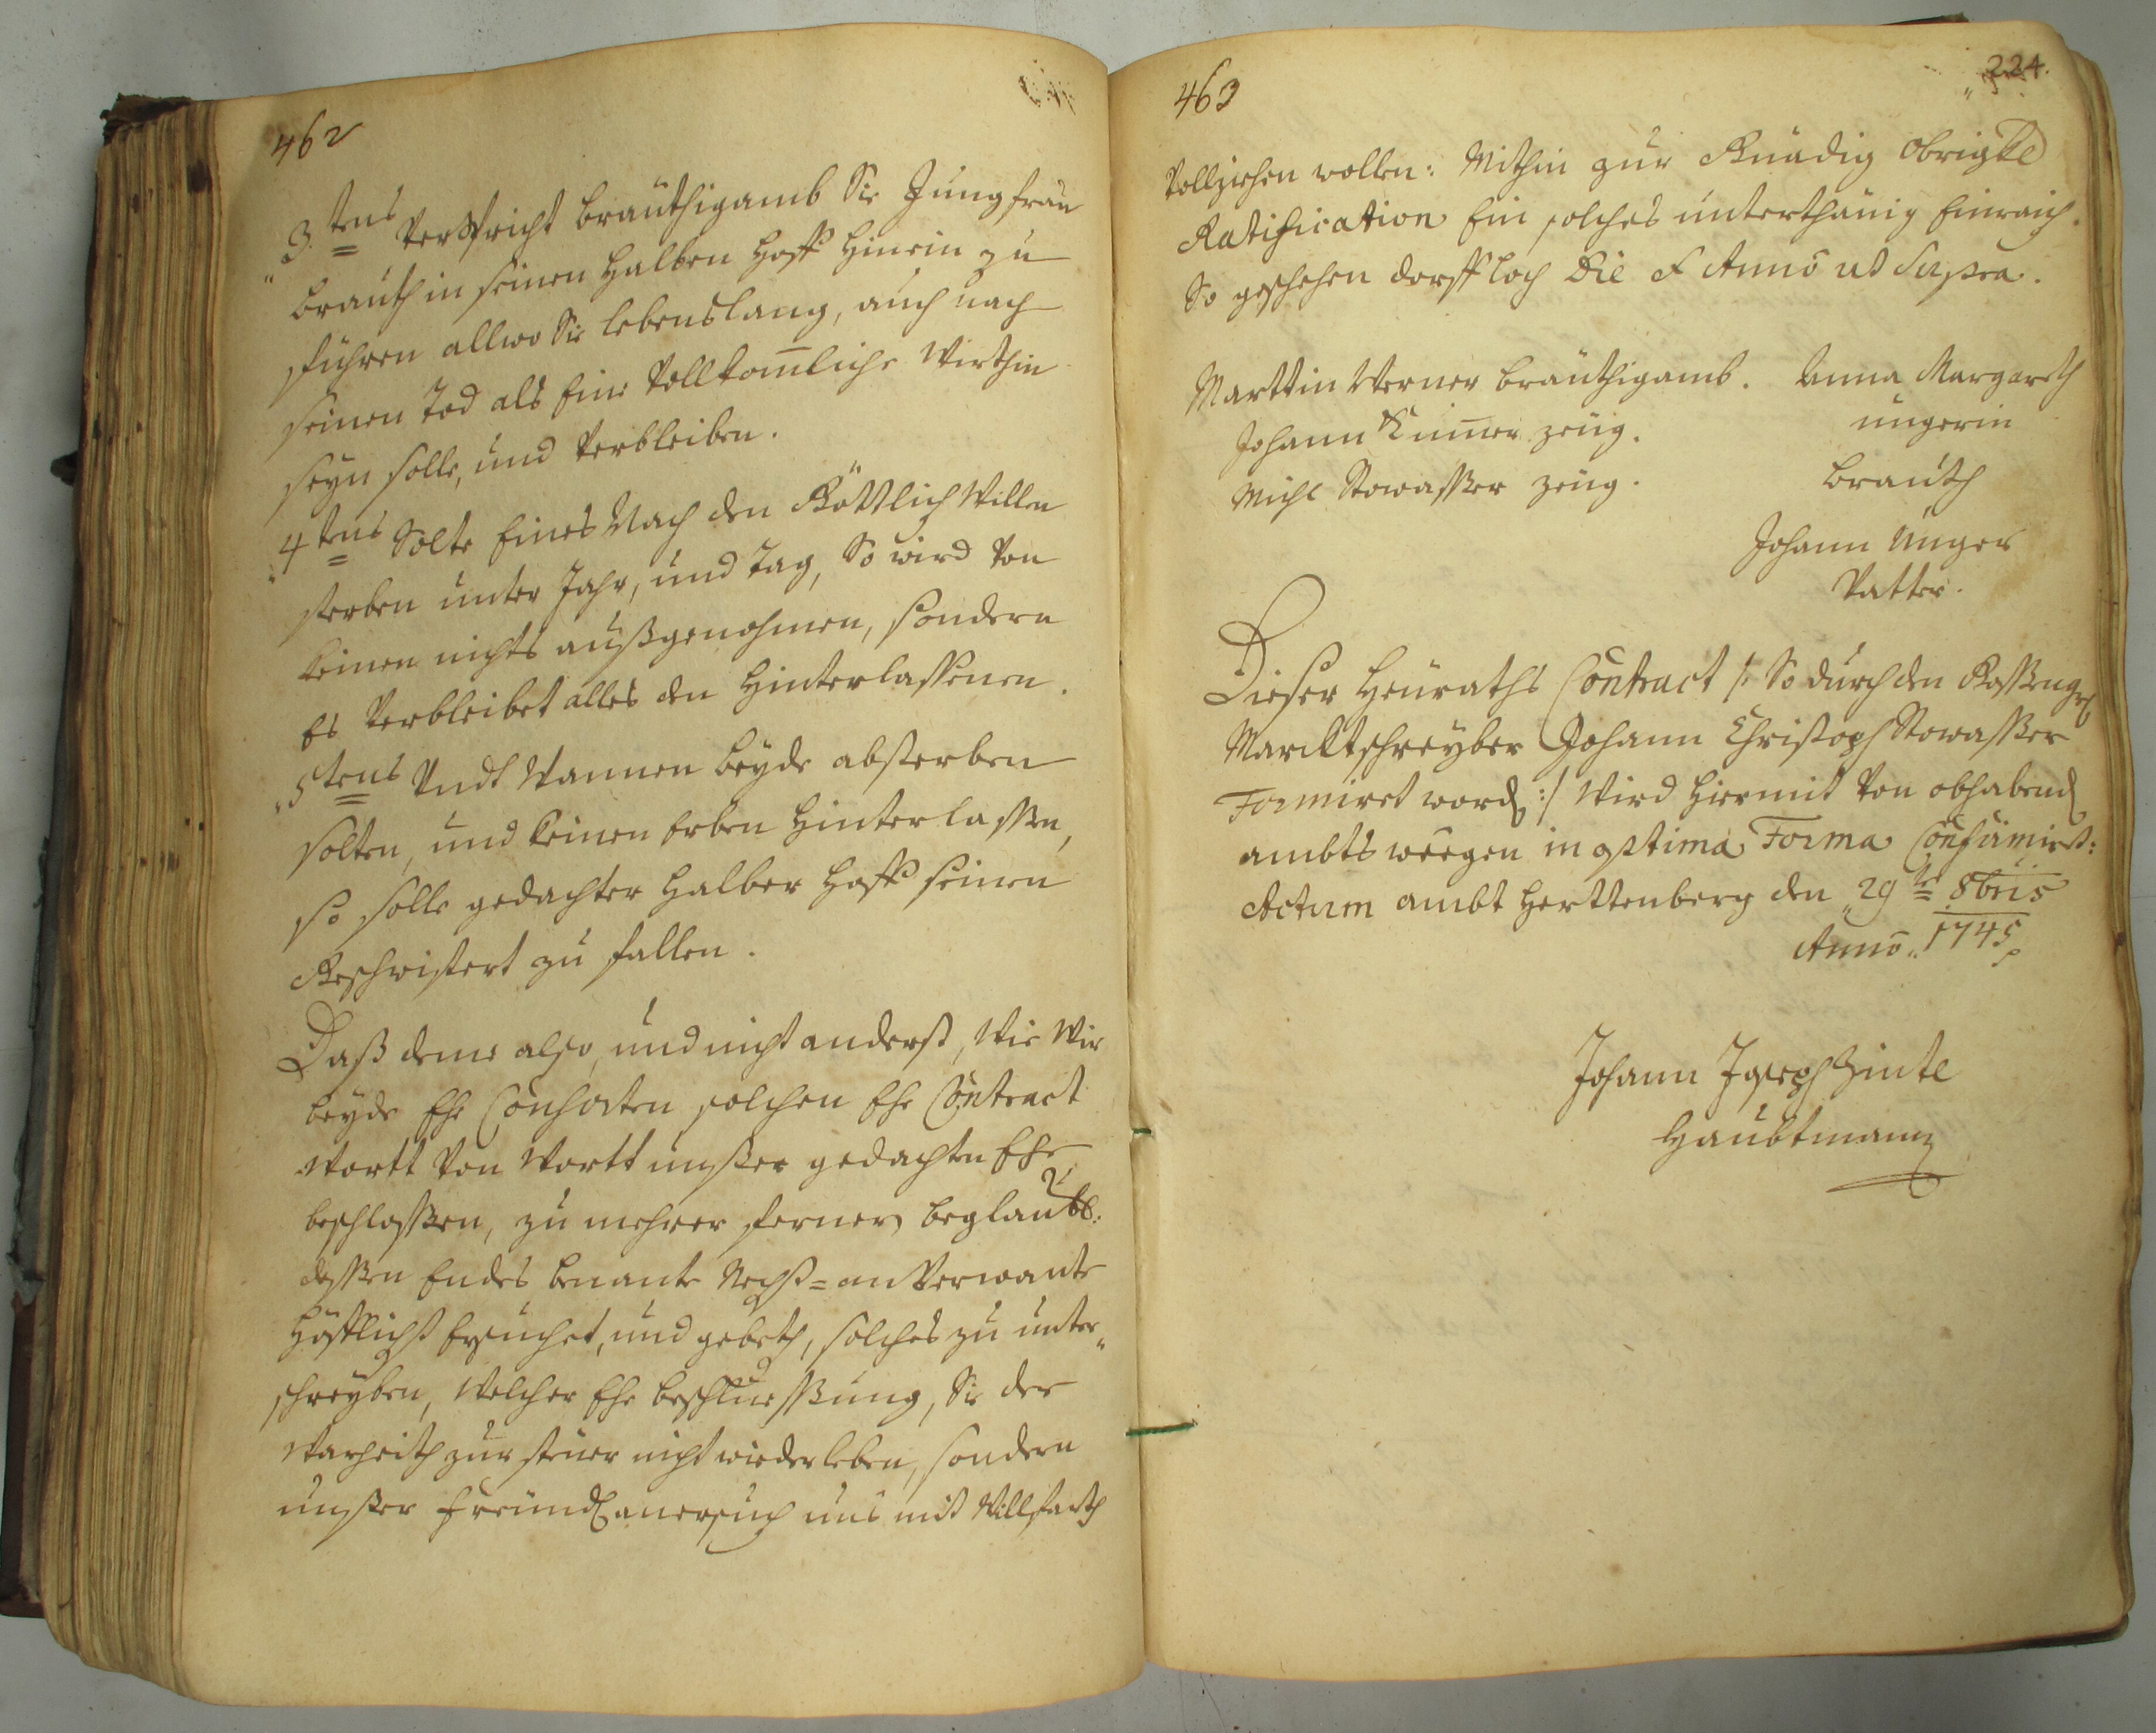 462
3.tens Verspricht bräuthigamb Sie Jungfrau
brauth in seinen Halben Hoff hinein zu
führen allwo Sie lebenslang, auch nach
seinen Tod als Eine Vollkom̅liche Wirthin
seyn solle, und Verbleiben.
4tens Solte Eines Nach den Göttlich Willen
sterben unter Jahr, und Tag, So wird Von
keinen nichts außgenohmen, sondern
Es Verbleibet alles den Hinterlassenen.
5tens Vndt Wannen beyde absterben
solten, und keinen Erben Hinterlassen,
so solle gedachter Halber Hoff seinen
Geschwistert zu fallen.
Daß deme also, und nicht anderst, Wie Wir
beyde Ehe Consorten solchen Ehe Contract
Wortt Von Wortt unßer gedachten Ehe
beschlossen, zu mehrer ferner beglaubt:
dessen Endes benante Nechst=anVerwante
Höfflichst Ersuchet, und gebeth, solches zu unter„
schreyben, Welcher Ehe beschluessung, Sie der
Warheith zur steuer nicht wiederleben, sondern
unßer freundl ansuch uns mit Willfarth
463
224.
Vollziehen wollen: Mithin zur Gnädig Obrigkl
Ratification Ein solches unterthänig Einraich.
So geschehen dorff loch Die & Anno ut Supra.
Marttin Werner bräuthigamb. Anna Margareth
Johann zeüg. ungerin
Michl Stowasser zeüg. brauth
Johann Unger
Vatter.
Dieser Heuraths Contract /: So durch den
Marcktschreyber Johann Christoph Stowasser
Formiret word :/ Wird hiermit Von obhabend
ambts weegen in optima Forma Confirmirt:
Actum ambt Herttenberg den 29te 8bris
Anno 1745
Johann Joseph
Haubtmann